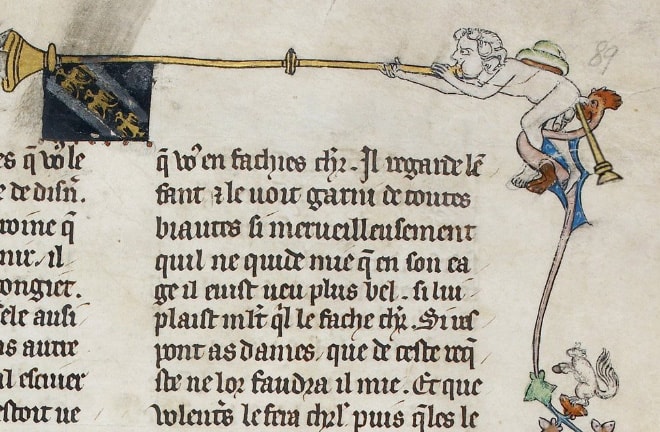 89
es q̄ vo⁹ le
e de disn̄.
roine q̄
nir. il
ongier.
sele ausi
as autre
il escuier
estoit ue
q̄ vo⁹ en fachies chr̄. Il regarde lē
fant ⁊ le uoit garni de toutes
biautes si merueilleusement
quil ne quide mie q̄ en son ea
ge il euist ueu plus bel. si lui
plaist ml̄t q̄l le fache chr̄. Si res
pont as dames, que de ceste req̄
ste ne lor faudra il mie. Et que
volent̄s le fera puis q̄les le